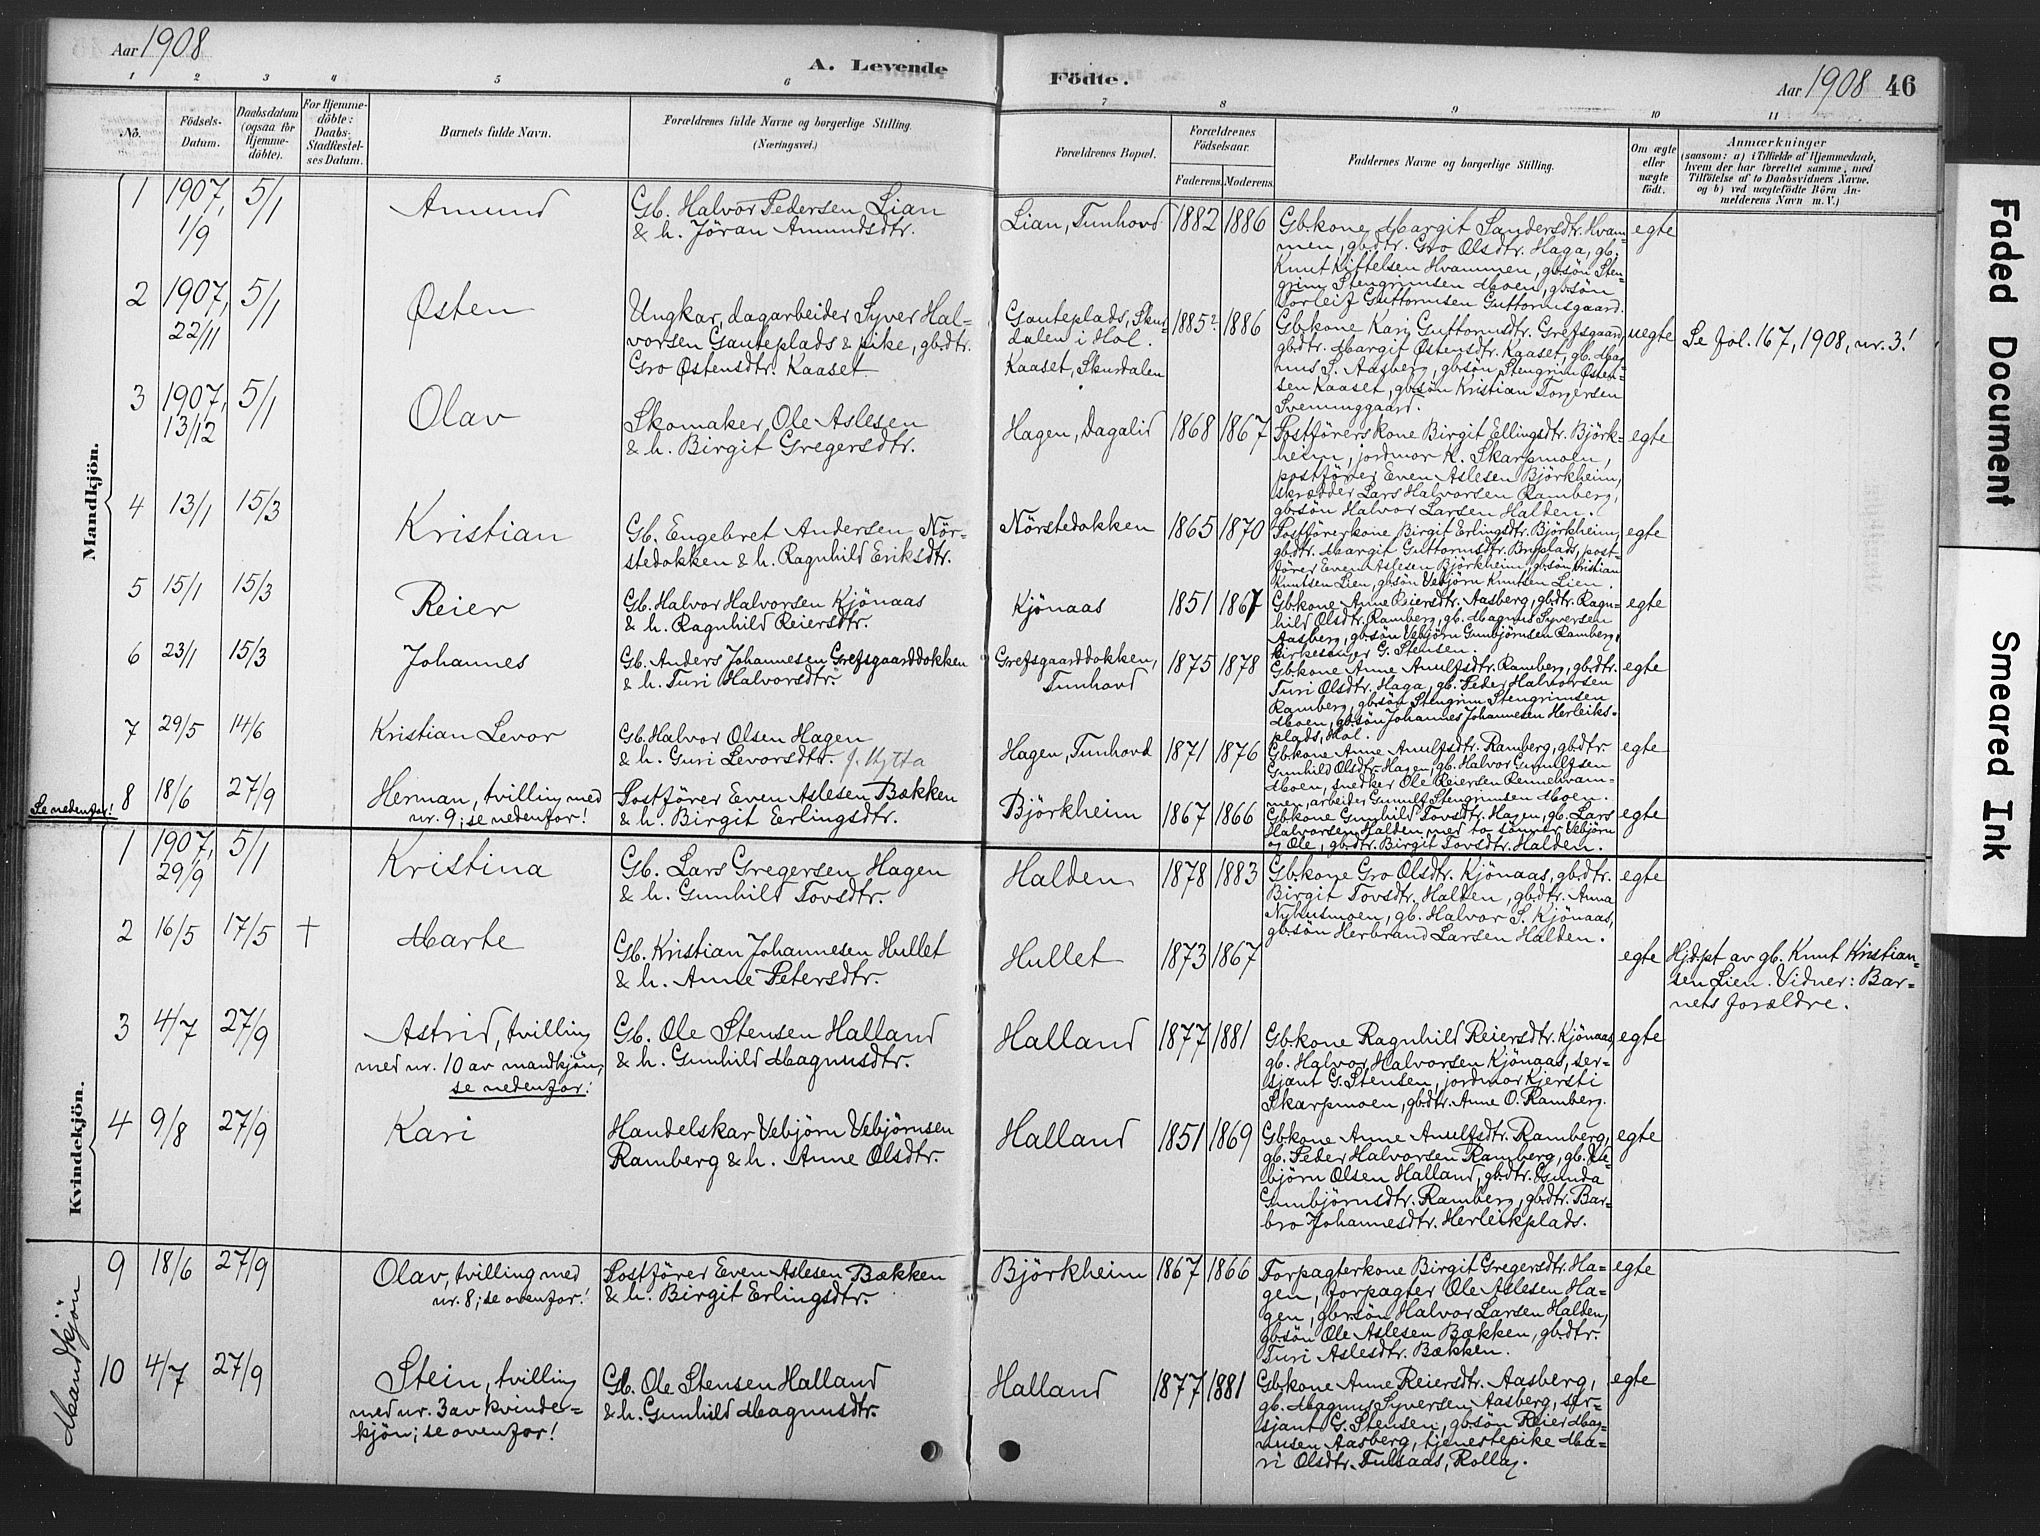 Aar 1908
A. Levende
Födte.
Aar 1908 46
1 2 3 4 5 6 7 8 9 10 11
No.
Födsels-
Datum.
Daabsdatum
(ogsaa for
Hjemme-
döbte).
For Hjemme-
döbte:
Daabs-
Stadfæstel-
ses Datum.
Barnets fulde Navn.
Forældrenes fulde Navne og borgerlige Stilling.
(Næringsvei.)
Forældrenes Bopæl.
Forældrenes
Födselsaar.
Faderens. Moderens.
Faddernes Navne og borgerlige Stilling.
Om ægte
eller
uægte
födt.
Anmærkninger
(saasom: a) i Tilfælde af Hjemmedaab,
hvem der har forrettet samme, med
Tilföielse af to Daabsvidners Navne,
og b) ved uægtefödte Börn An-
melderens Navn m. V.)
Mandkjön.
1 1907, 1/9 5/1 Amund
Gb. Halvor Pedersen Lian
& h. Jöran Amundsdtr.
Lian, Tunhovd 1882 1886
Gbkone Margit Sandersdtr. Hvam-
men, gbdtr. Gro Olsdtr. Haga, gb.
Knut Kiftelsen Hvammen, gbsön Sten-
grim Stengrimsen Moen, gbsön
Torleif Guttormsen Guttormsgaard.
egte
2 1907, 22/11 5/1 Østen
Ungkar, dagarbeider Syver Hal-
vorsen Gauteplads & pike, gbdtr.
Gro Østensdtr. Kaaset
Gauteplads, Skur-
dalen i Hol.
Kaaset, Skurdalen
1885? 1886
Gbkone Kari Guttormsdtr. Grefsgaard,
gbdtr. Margit Østensdtr. Kaaset, gb. Mag-
nus S. Aasberg, gbsön Stengrim Østen-
sen Kaaset, gbsön Kristian Torgersen
Sveninggaard.
uegte
Se fol. 167, 1908, nr. 3!
3 1907, 13/12 5/1 Olav
Skomaker Ole Aslesen
& h. Birgit Gregersdtr.
Hagen, Dagalid 1868 1867
Postförerskone Birgit Ellingsdtr. Björk-
heim, jordmor K. Skarpmoen,
postförer Even Aslesen Björkheim,
skrædder Lars Halvorsen Ramberg,
gbsön Halvor Larsen Halden.
egte
4 13/1 15/3 Kristian
Gb. Engebret Andersen Nör-
stedokken & h. Ragnhild Eriksdtr.
Nörstedokken 1865 1870
Postförerkone Birgit Erlingsdtr. Björkheim,
gbdtr. Margit Guttormsdtr. Bruplads, post-
förer Even Aslesen Björkheim, gbsön Kristian
Knutsen Lien, gbsön Vebjörn Knutsen Lien.
egte
5 15/1 15/3 Reier
Gb. Halvor Halvorsen Kjönaas
& h. Ragnhild Reiersdtr.
Kjönaas 1851 1867
Gbkone Anne Reiersdtr. Aasberg, gbdtr. Ragn-
hild Olsdtr. Ramberg, gb. Magnus Syversen
Aasberg, gbsön Vebjörn Gunbjörnsen Ramberg,
kirkesanger G. Stensen.
egte
6 23/1 15/3 Johannes
Gb. Anders Johannesen Grefsgaarddokken
& h. Turi Halvorsdtr
Grefsgaarddokken,
Tunhovd
1875 1878
Gbkone Anne Anulfsdtr. Ramberg, gbdtr.
Turi Olsdtr. Haga, gb. Peder Halvorsen
Ramberg, gbsön Stengrim Stengrimsen
Moen, gbsön Johannes Johannesen Herleiks-
plads, Hol.
egte
7 29/5 14/6 Kristian Levor
Gb. Halvor Olsen Hagen
& h. Guri Levorsdtr. f. Mytta
Hagen, Tunhovd 1871 1876
Gbkone Anne Anulfsdtr. Ramberg, gbdtr
Gunhild Olsdtr. Hagen, gb. Halvor Gunulfsen
Moen, snedker Ole Reiersen Rennehvam-
men, arbeider Gunulf Stengrimsen Moen.
egte
Se nedenfor!
8 18/6 27/9 Herman, tvilling med
nr. 9; se nedenfor!
Postförer Even Aslesen Bækken
& h. Birgit Erlingsdtr.
Björkheim 1867 1866
Gbkone Gunhild Tovsdtr. Hagen, gb. Lars
Halvorsen Halden med to sönner Vebjörn
og Ole, gbdtr. Birgit Tovsdtr. Halden.
egte
Kvindekjön.
1 1907, 29/9 5/1 Kristina
Gb. Lars Gregersen Hagen
& h. Gunhild Tovsdtr.
Halden 1878 1883
Gbkone Gro Olsdtr. Kjönaas, gbdtr.
Birgit Tovsdtr. Halden, gbdtr. Anna
Nyhusmoen, gb. Halvor S. Kjönaas,
gbsön Herbrand Larsen Halden.
egte
2 16/5 17/5 † Marte
Gb. Kristian Johannesen Hullet
& h. Anne Petersdtr.
Hullet 1873 1867
egte
Hjdpt av gb. Knut Kristian-
sen Lien. Vidner: Bar-
nets forældre.
3 4/7 27/9 Astrid, tvilling
med nr. 10 av mandkjön,
se nedenfor!
Gb. Ole Stensen Halland
& h. Gunhild Magnusdtr.
Halland 1877 1881
Gbkone Ragnhild Reiersdtr. Kjönaas,
gb. Halvor Halvorsen Kjönaas, ser-
sjant G. Stensen, jordmor Kjersti
Skarpmoen, gbdtr. Anne O. Ramberg.
egte
4 9/8 27/9 Kari
Handelskar Vebjörn Vebjörnsen
Ramberg & h. Anne Olsdtr.
Halland 1851 1869
Gbkone Anne Anulfsdtr. Ramberg,
gb. Peder Halvorsen Ramberg, gb. Ve-
björn Olsen Halland, gbdtr. Gunda
Gunbjörnsdtr. Ramberg, gbdtr. Bar-
bro Johannesdtr. Herleikplads.
egte
Mandkjön
9 18/6 27/9 Olav, tvilling med
nr. 8; se ovenfor!
Postförer Even Aslesen Bækken
& h. Birgit Erlingsdtr.
Björkheim 1867 1866
Forpagterkone Birgit Gregersdtr. Ha-
gen, forpagter Ole Aslesen Ha-
gen, gbrsön Halvor Larsen Halden,
gbsön Ole Aslesen Bækken, gbdtr.
Turi Aslesdtr. Bækken.
egte
10 4/7 27/9 Stein, tvilling
med nr. 3 av kvinde-
kjön; se ovenfor!
Gb. Ole Stensen Halland
& h. Gunhild Magnusdtr.
Halland 1877 1881
Gbkone Anne Reiersdtr. Aasberg,
gb. Magnus Syversen Aasberg, ser-
sjant G. Stensen, gbsön Reier Mag-
nusen Aasberg, tjenestepike Ma-
ri Olsdtr. Fulsaas, Rollag.
egte
Faded Document
Smeared Ink